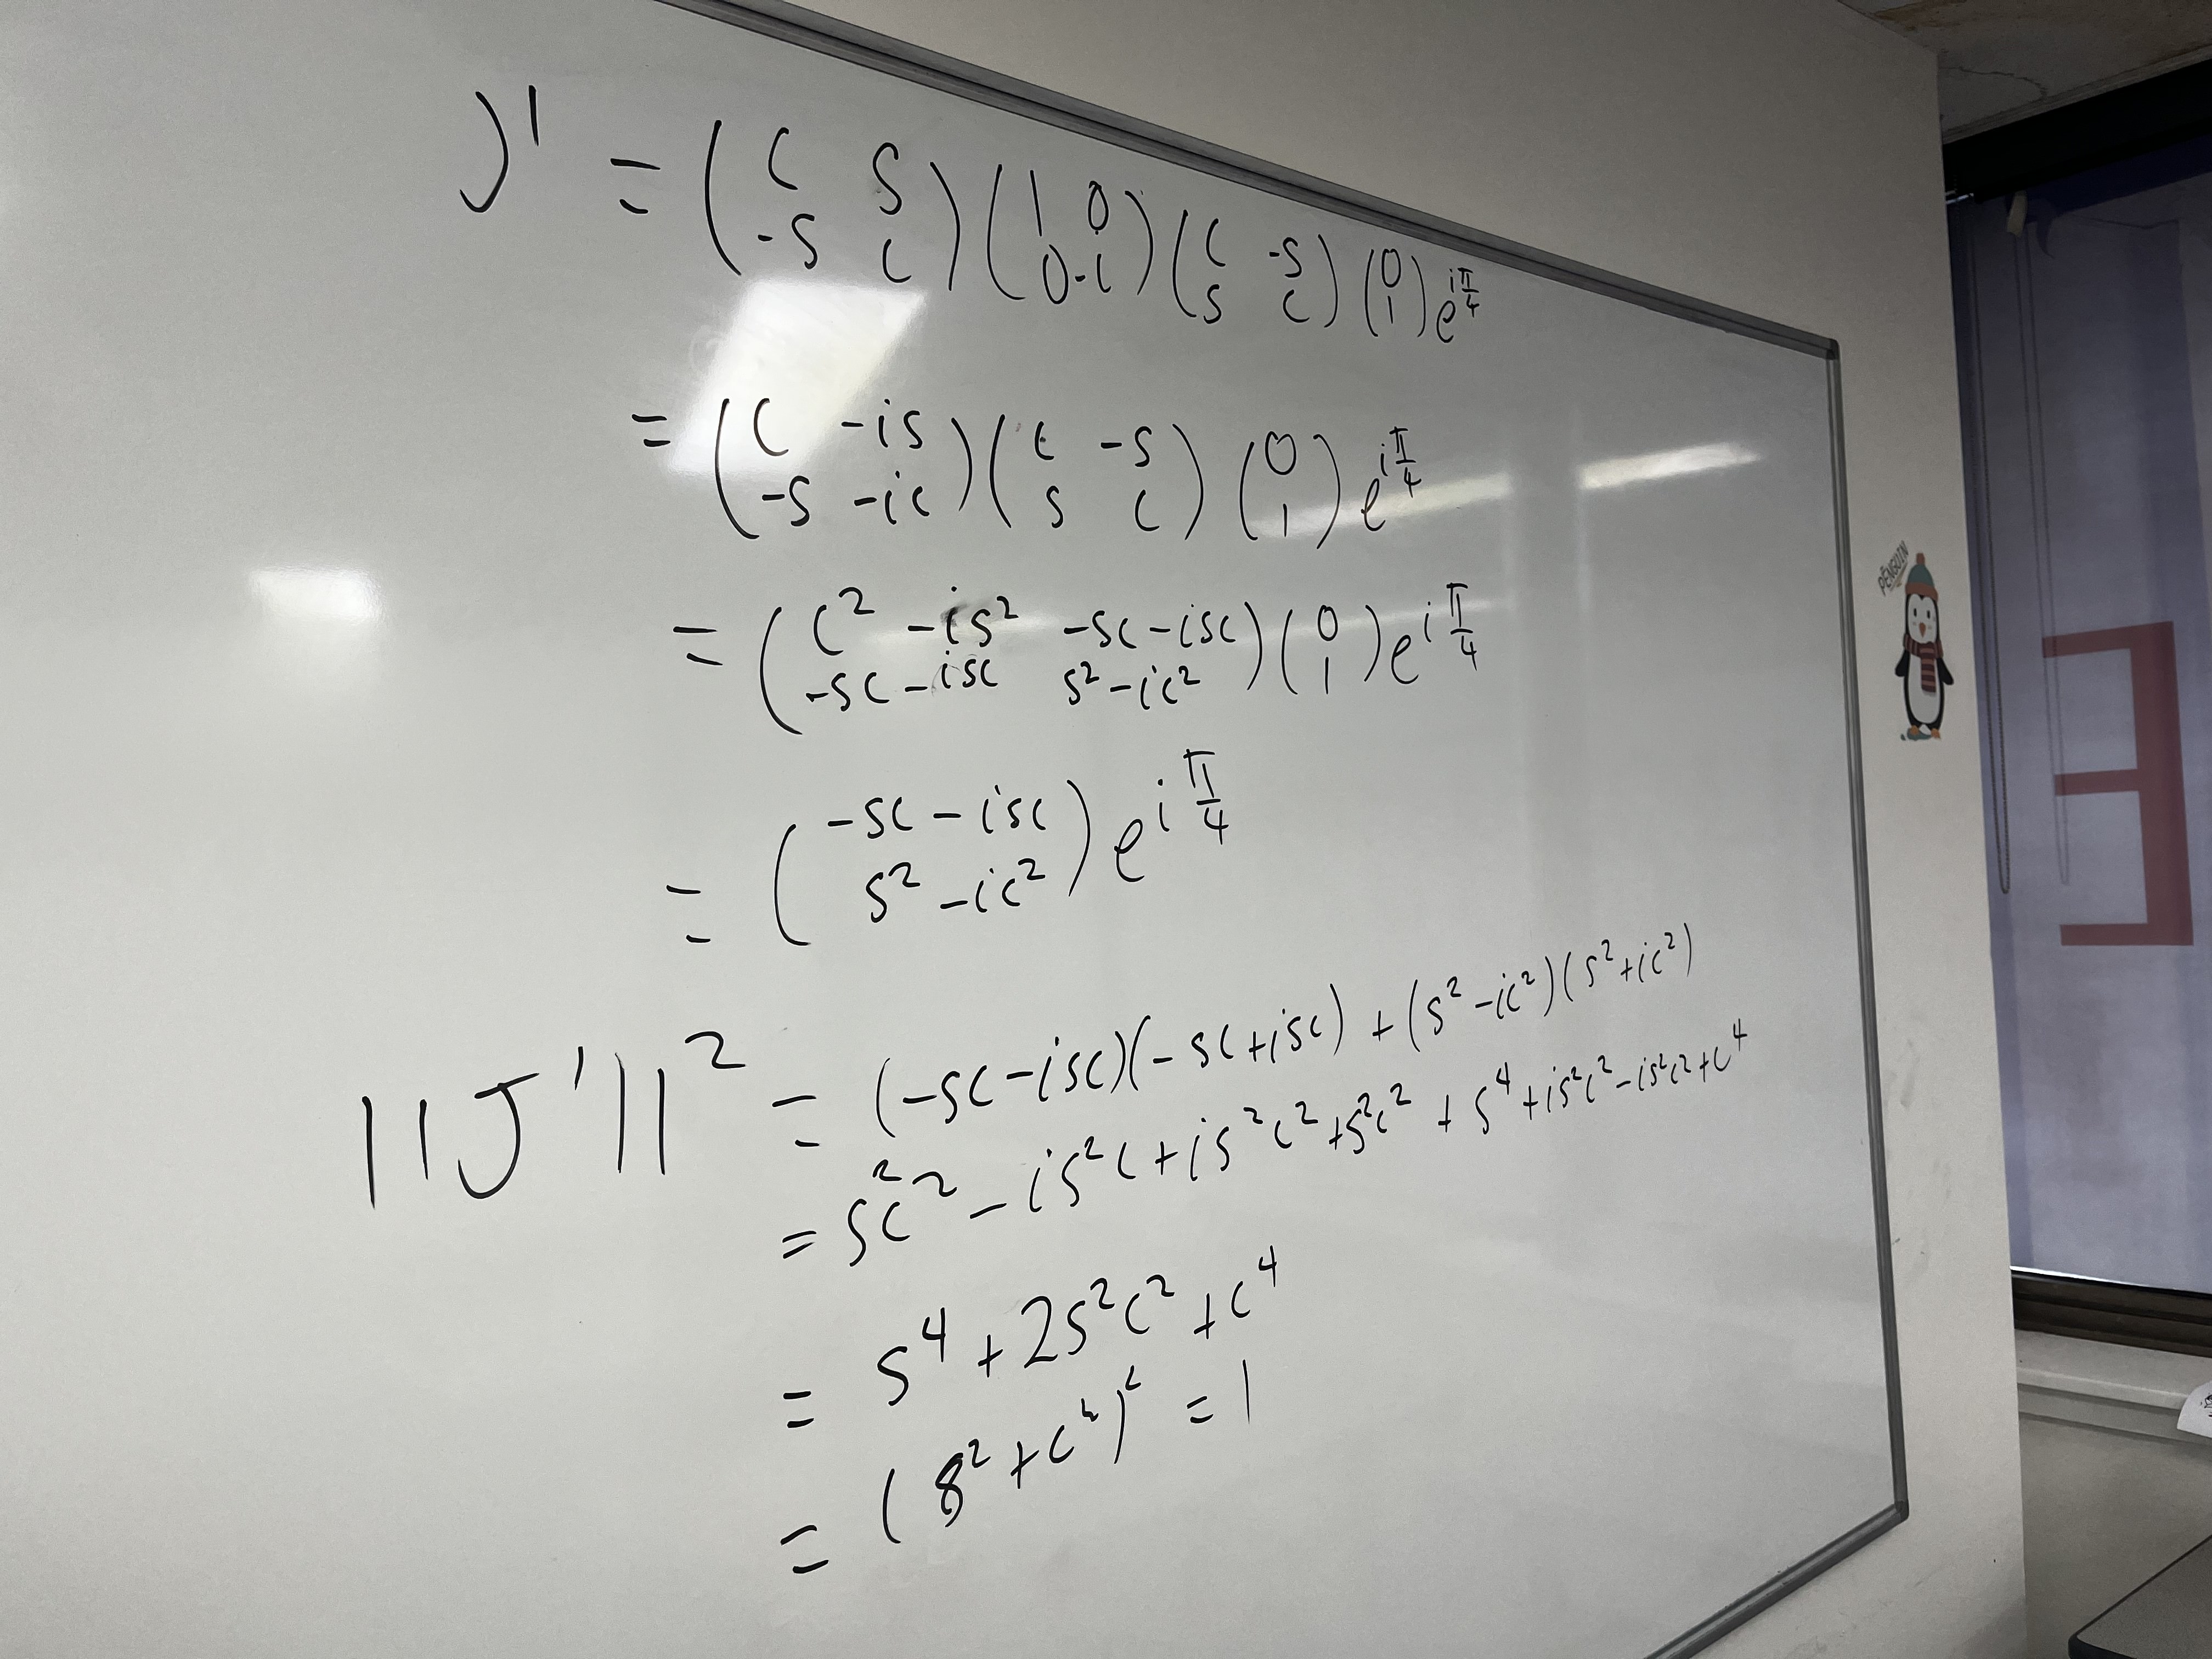 J' = (c s -s c)(1 0 0 -i)(c -s s c)(0 1)e^{iπ/4}
= (c -is -s -ic)(c -s s c)(0 1)e^{iπ/4}
= (c² -is² -sc-isc -sc-isc s²-ic²)(0 1)e^{iπ/4}
= (-sc-isc s²-ic²)e^{iπ/4}
||J'||² = (-sc-isc)(-sc+isc) + (s²-ic²)(s²+ic²)
= s²c² - is²c + is²c² + s²c² + s⁴ + is²c² - is²c² + c⁴
= s⁴ + 2s²c² + c⁴
= (s² + c²)² = 1
PENGUIN
E